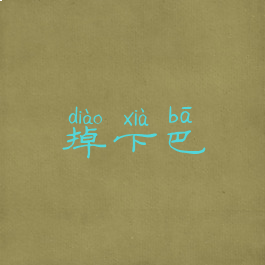 diào xià bā
掉下巴